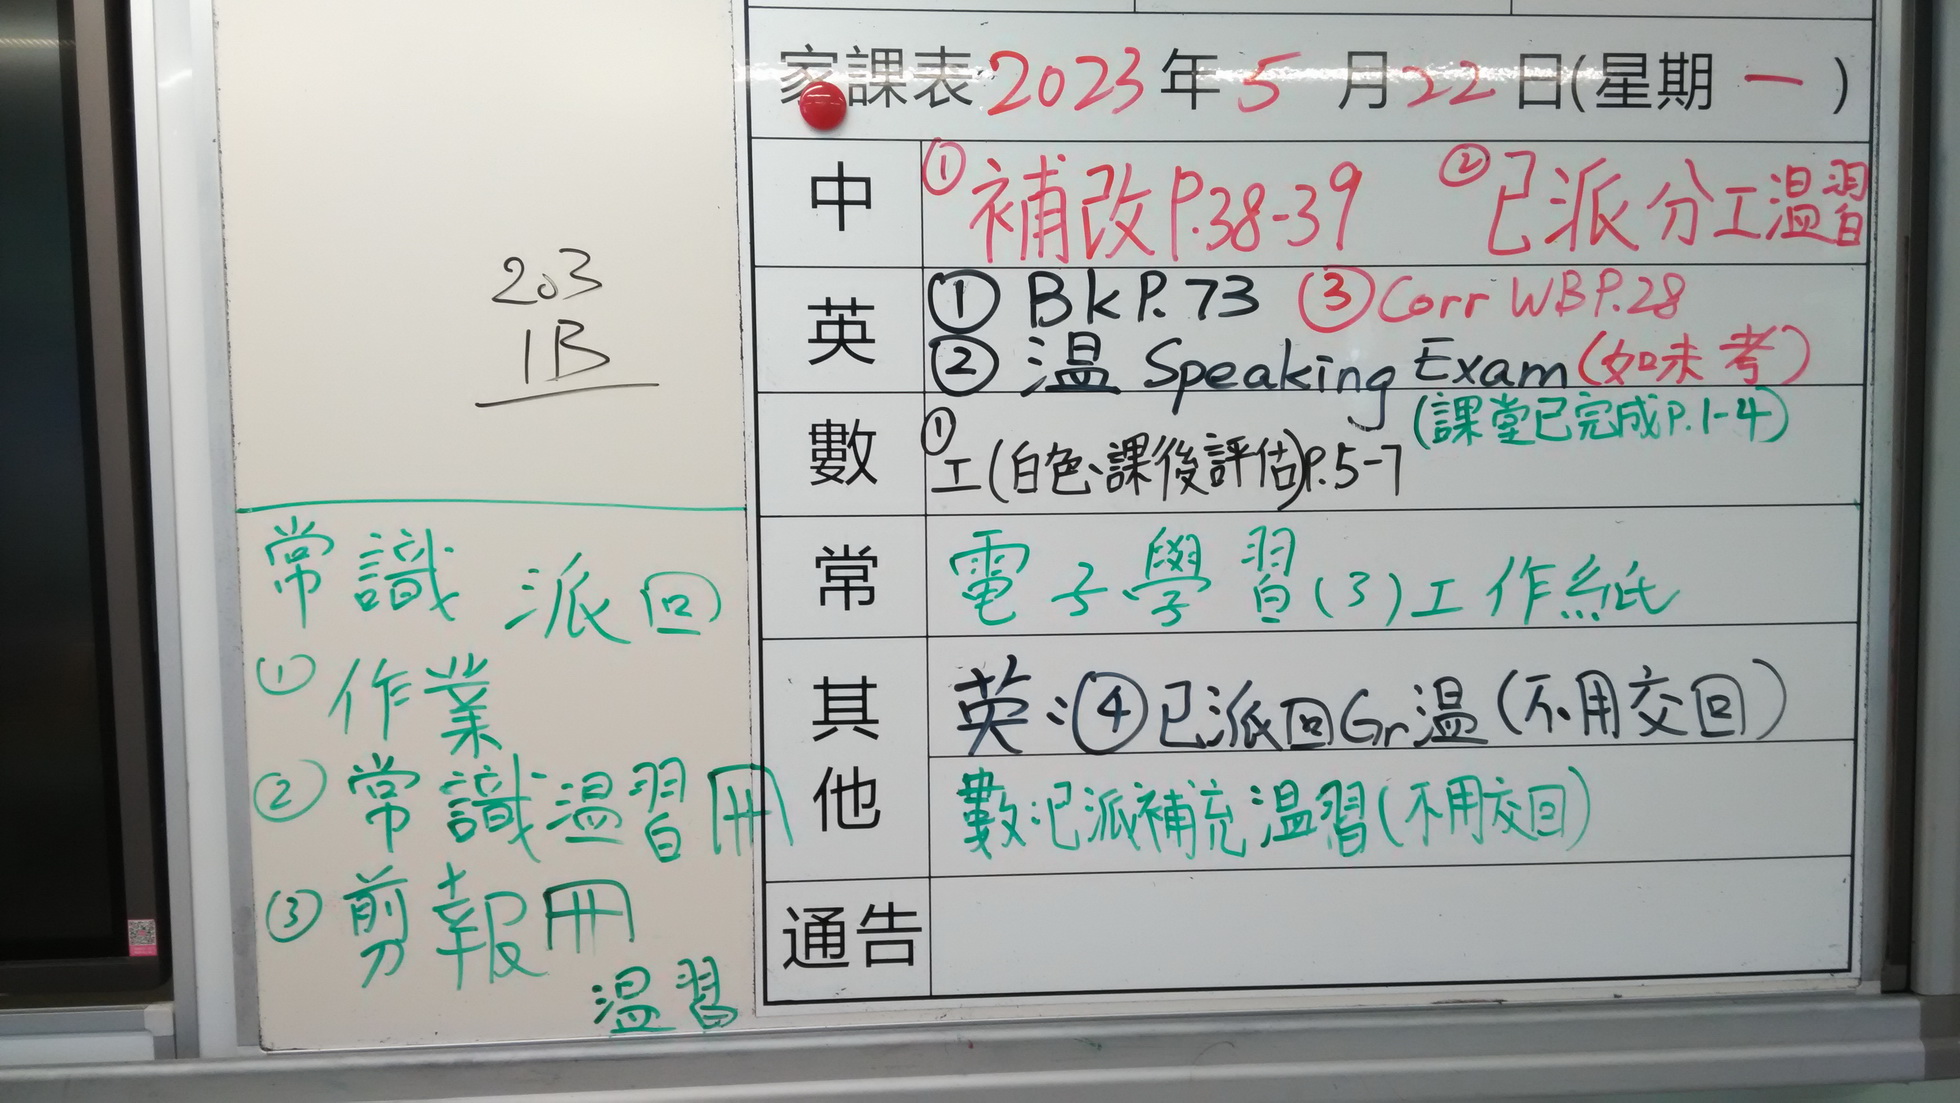 203
1B
常識 派回
① 作業
② 常識溫習冊
③ 剪報冊
溫習
家課表 2023年5月22日(星期一)
中
① 補改P.38-39 ② 已派分工溫習
英
① BkP.73 ③ Corr WBP.28
② 温 Speaking Exam (如未考)
數
(課堂已完成P.1-4)
① 工(白色、課後評估)P.5-7
常
電子學習(3)工作紙
其他
英:④已派回Gr温(不用交回)
數:已派補充温習(不用交回)
通告